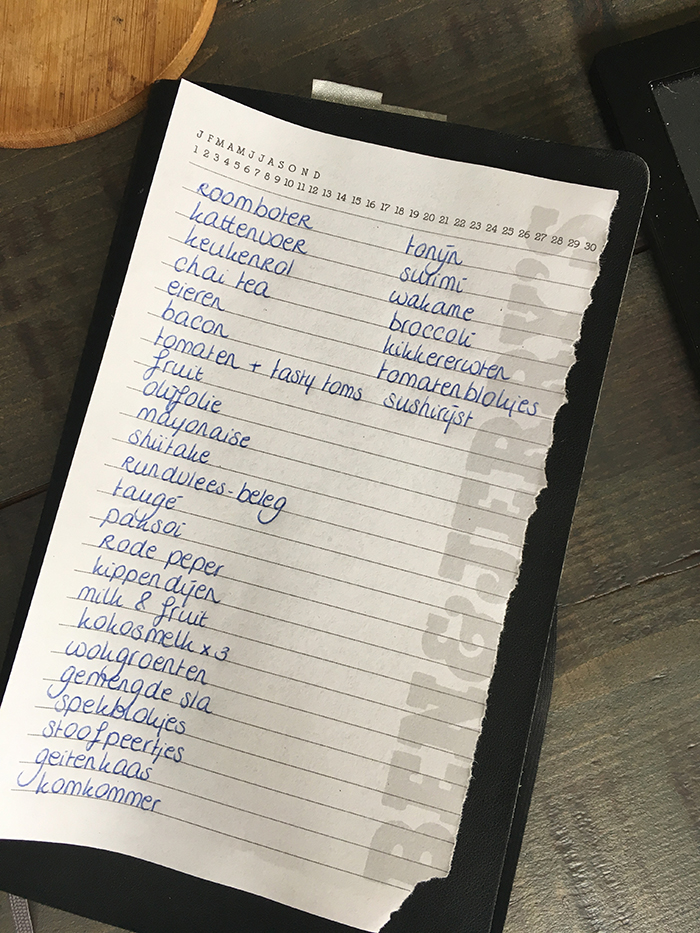 J F M A M J J A S O N D
1 2 3 4 5 6 7 8 9 10 11 12 13 14 15 16 17 18 19 20 21 22 23 24 25 26 27 28 29 30
roomboter
kattenvoer
keukenrol
chai tea
eieren
bacon
tomaten + tasty toms
fruit
olijfolie
mayonaise
shiitake
rundvlees-beleg
taugé
paksoi
Rode peper
kippendijen
milk & fruit
kokosmelk x 3
wokgroenten
gemengde sla
spekblokjes
stoofpeertjes
geitenkaas
komkommer
tonijn
surimi
wakame
broccoli
kikkererwten
tomatenblokjes
sushirijst
BEN & JERRY'S